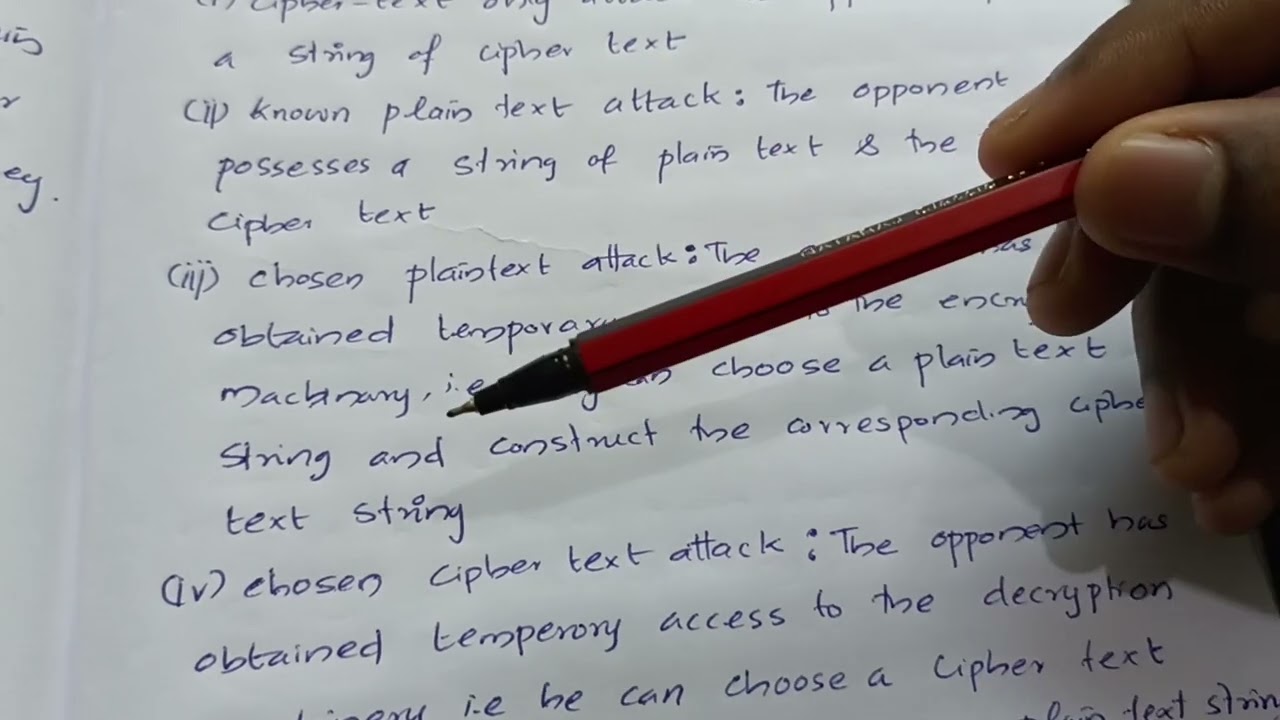 (i) cipher-text only
a string of cipher text
(ii) known plain text attack: The opponent
possesses a string of plain text & the
cipher text
(iii) chosen plaintext attack: The has
obtained temporary the
machinary, i.e can choose a plain text
string and construct the corresponding
text string
(iv) chosen cipher text attack: The opponent has
obtained temperory access to the decryption
i.e he can choose a cipher text
plain text
ey.